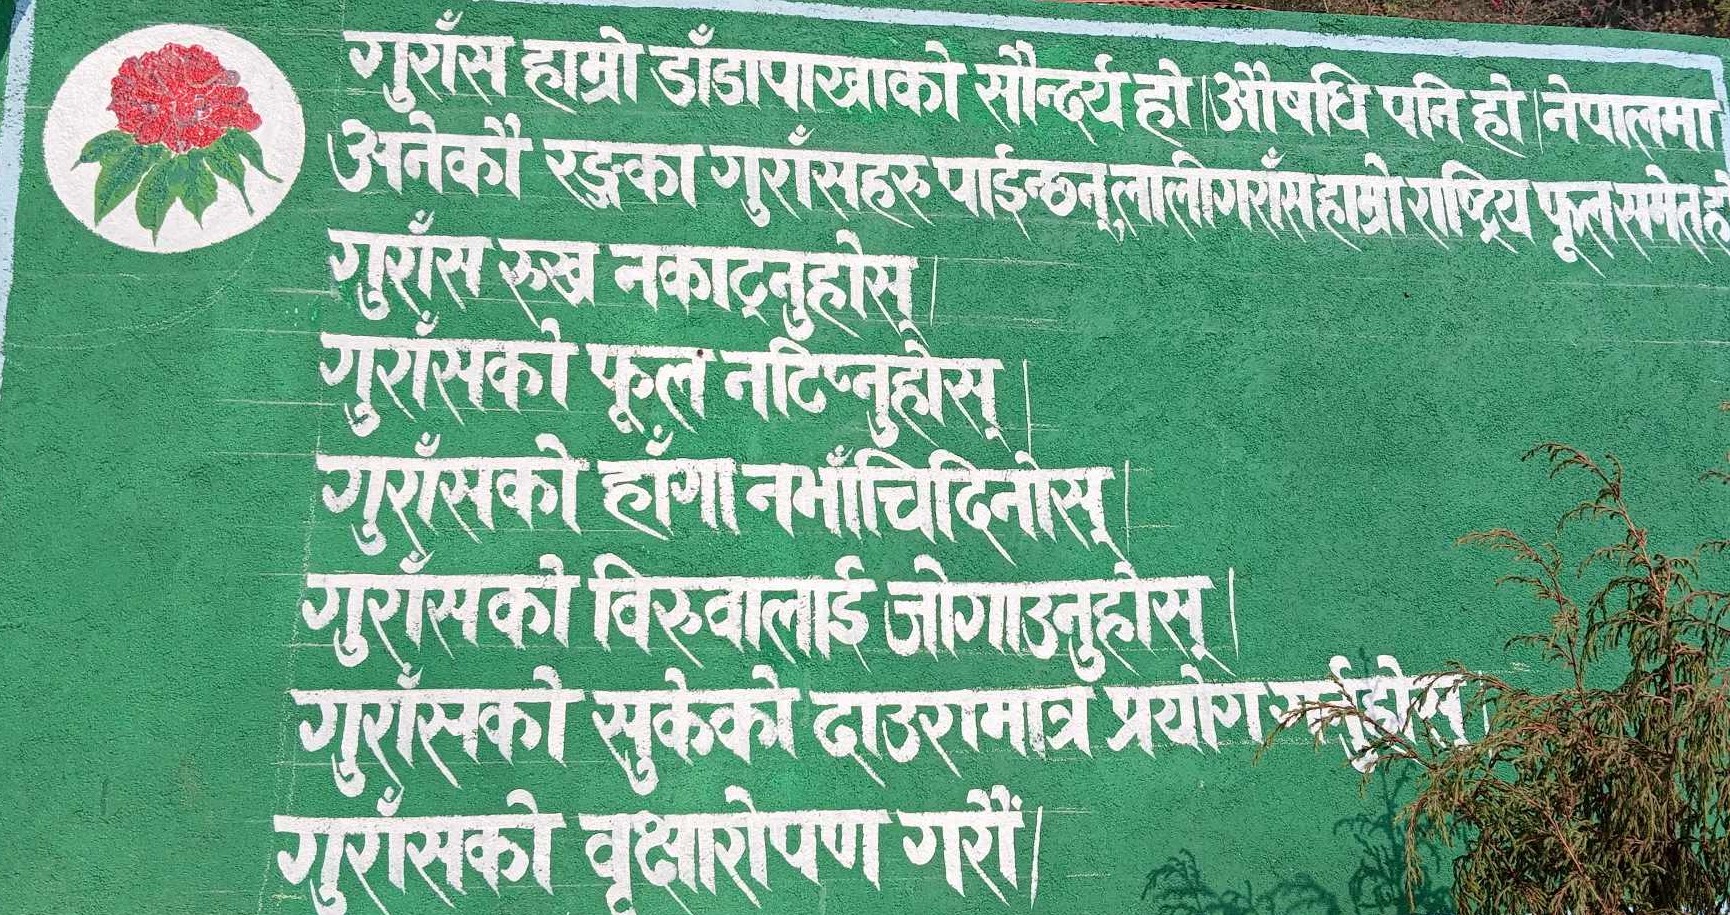 गुराँस हाम्रो डाँडापाखाको सौन्दर्य हो।औषधि पनि हो।नेपालमा
अनेकौ रङ्गका गुराँसहरु पाईन्छन्,लालीगराँस हाम्रो राष्ट्रिय फूल समेत हो
गुराँस रुख नकाट्नुहोस्।
गुराँसको फूल नटिप्नुहोस्।
गुराँसको हाँगा नभाँचिदिनोस्।
गुराँसको विरुवालाई जोगाउनुहोस्।
गुराँसको सुकेको दाउरामात्र प्रयोग गर्नुहोस्।
गुराँसको वृक्षारोपण गरौं।